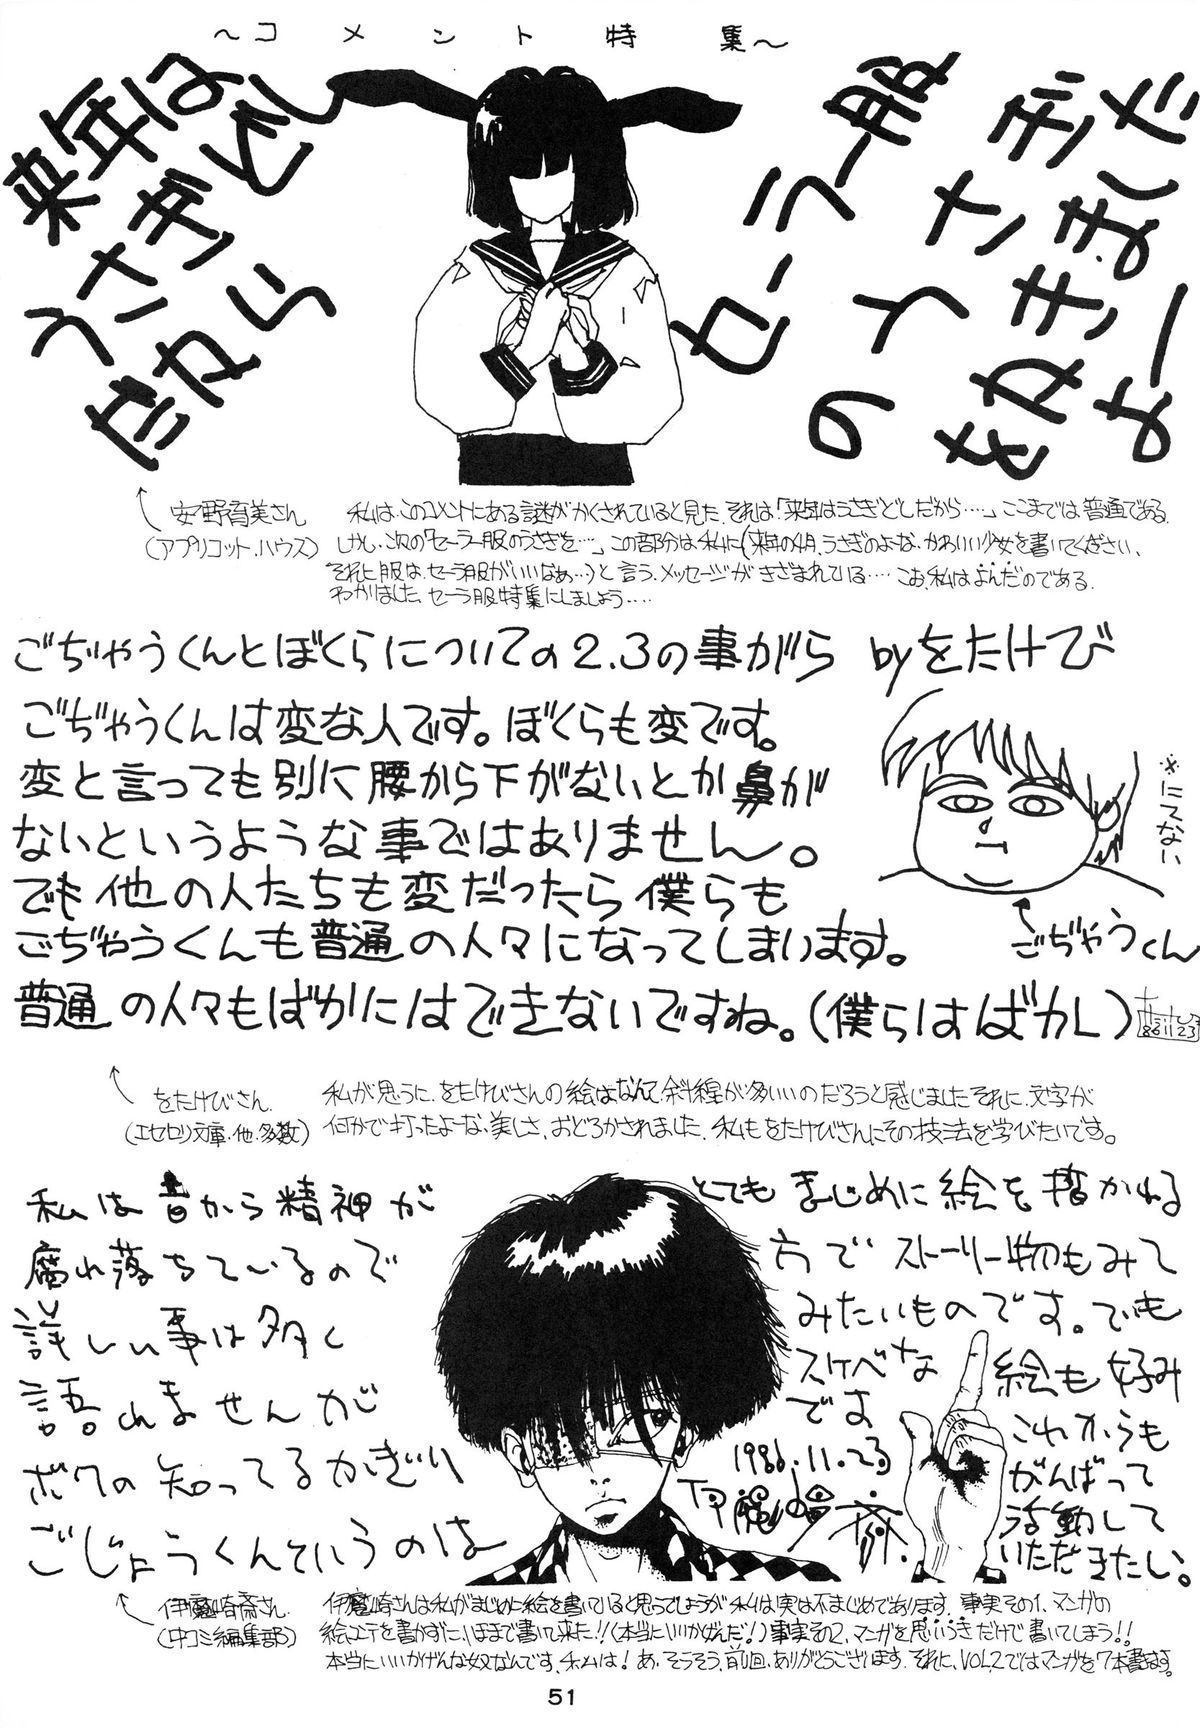 ～コメント特集～
来年は
うさぎどし
だから
セーラー服
のうさぎ
をかきました
よー
安野育美さん
（アプリコット・ハウス）
私は、このコメントにある謎がかくされていると見た。それは「来年はうさぎどしだから‥‥」ここまでは普通である。
しかし、次の「セーラー服のうさぎを…」この部分は私に（来年の4月、うさぎのよーな、かわいい少女を書いてください、
それに服は、セーラ服がいいなぁ…）と言う、メッセージがきざまれている‥‥こお、私はよんだのである。
わかりました、セーラ服特集にしましょう‥‥
ごぢゃうくんとぼくらについての2.3の事がら byをたけび
ごぢゃうくんは変な人です。ぼくらも変です。
変と言っても別に腰から下がないとか鼻が
ないというような事ではありません。
でも他の人たちも変だったら僕らも
ごぢゃうくんも普通の人々になってしまいます。
普通の人々もばかにはできないですね。（僕らはばかし）
86 11 23
※にてない
ごぢゃうくん
をたけびさん
（エセロリ文庫・他・多数）
私が思うに、をたけびさんの絵はなんて、斜線が多いいのだろうと感じました。それに、文字が
何かで打ったよーな、美しさ、おどろかされました、私もをたけびさんにその技法を学びたいです。
私は昔から精神が
腐れ落ちているので
詳しい事は多く
語れませんが
ボクの知ってるかぎり
ごじょうくんていうのは
とてもまじめに絵を描かれる
方でストーリー物もみて
みたいものです。でも
スケベな絵も好み
です
これからも
がんばって
活動して
いただきたい。
1986.11.23
伊魔崎斎
伊魔崎斎さん
（中コミ編集部）
伊魔崎さんは私がまじめに絵を書いていると思うでしょうが私は実は不まじめであります。事実その1、マンガの
絵コンテを書かずに、いままで書いて来た!!（本当にいいかげんだ！）事実その2、マンガを思いつきだけで書いてしまう!!
本当にいいかげんな奴なんです、私は！あ、そうそう、前回、ありがとうございます。それに、VOL.2ではマンガを7本書きます。
51